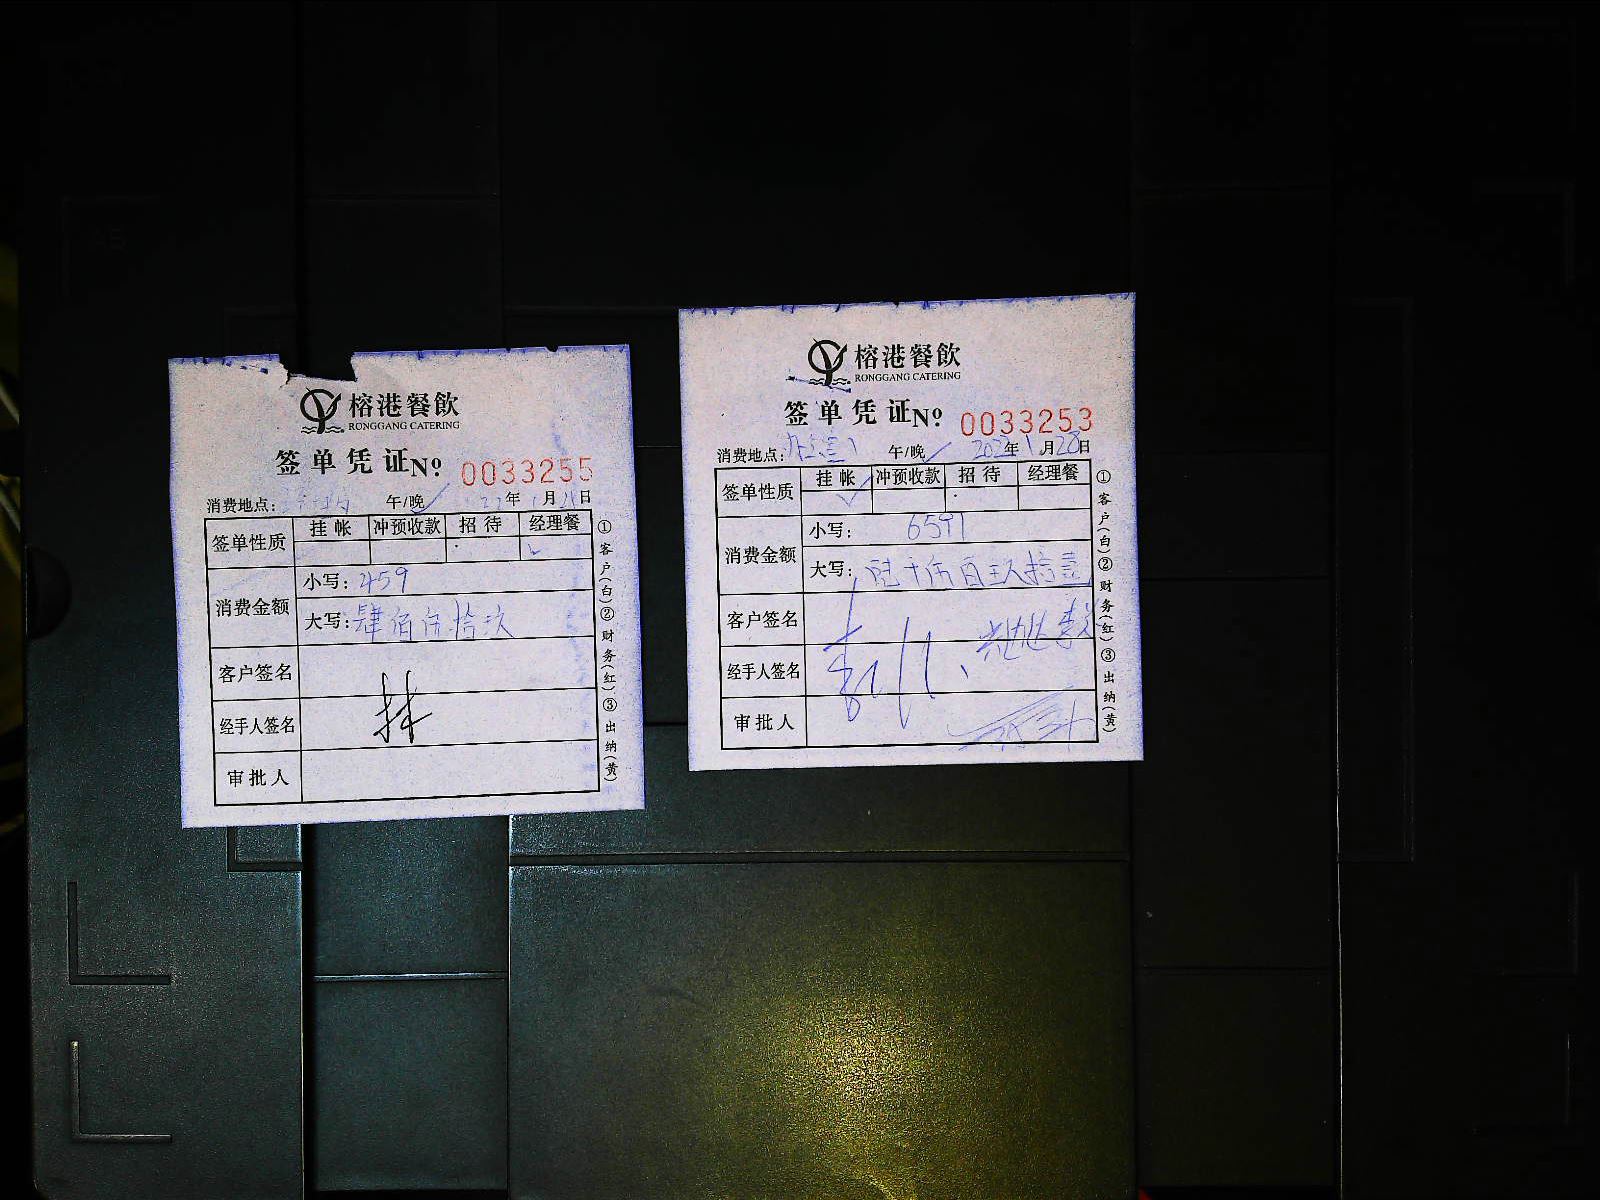 榕港餐飲
RONGGANG CATERING
签单凭证 № 0033255
消费地点: 午/晚✓ 年1月 日
签单性质 挂帐 冲预收款 招待 经理餐
✓
消费金额
小写: 459
大写: 肆佰伍拾玖
客户签名
经手人签名
审批人
①客户(白)②财务(红)③出纳(黄)
榕港餐飲
RONGGANG CATERING
签单凭证 № 0033253
消费地点: 午/晚✓ 2022年1月20日
签单性质 挂帐 冲预收款 招待 经理餐
✓
消费金额
小写: 6591
大写: 陆千伍百玖拾壹
客户签名
经手人签名
审批人
①客户(白)②财务(红)③出纳(黄)